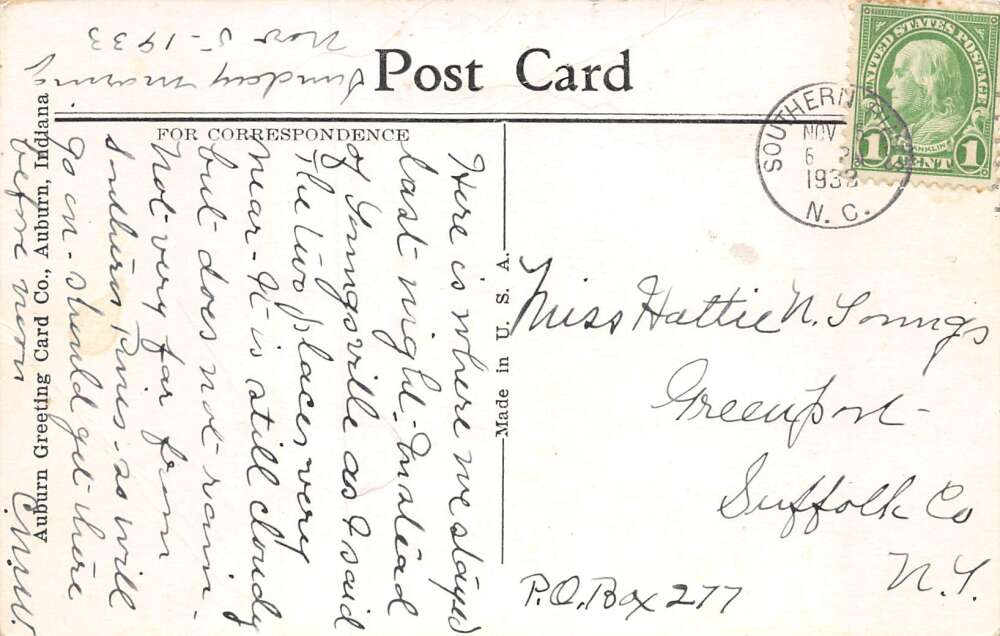 Post Card
FOR CORRESPONDENCE
Auburn Greeting Card Co., Auburn, Indiana
Made in U. S. A.
UNITED STATES POSTAGE
FRANKLIN
1 CENT 1
SOUTHERN PINES
NOV 5
6 PM
1933
N. C.
Sunday morning
Nov 5 - 1933
Here is where we stayed
last night - Instead
of Youngsville as I said
The two places very
near - It is still cloudy
but does not rain -
Not very far from
southern Pines - so will
go on - should get there
before noon
Miss Hattie N. Youngs
Greenport
Suffolk Co
N.Y.
P.O. Box 277